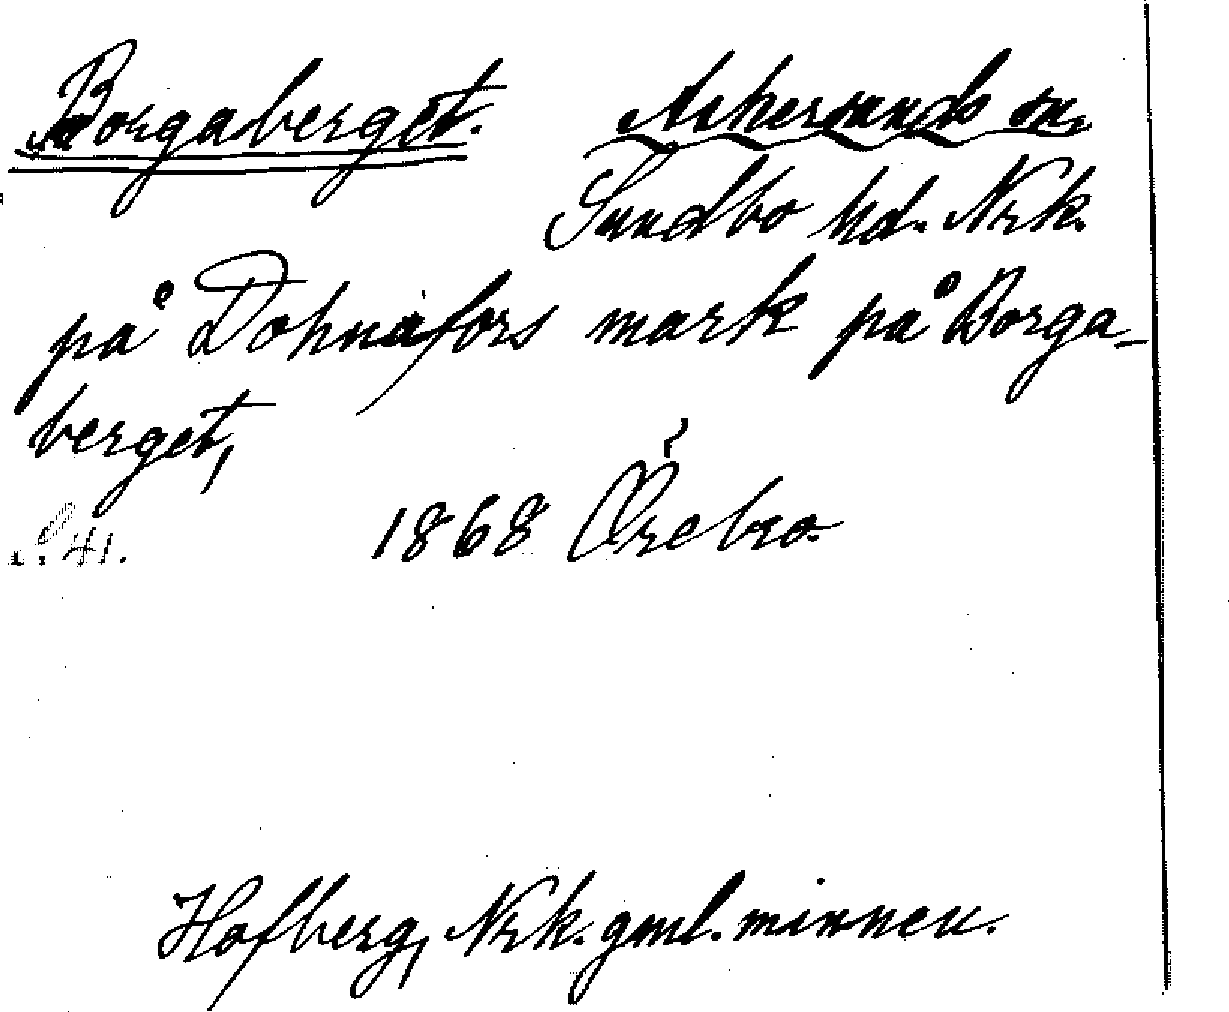 Borgaberget. Askersunds sn.
Sundbo hd. Nrk.
på Dohnafors mark på Borga-
berget,
s. 41. 1868 Örebro.
Hofberg, Nrk. gml. minnen.